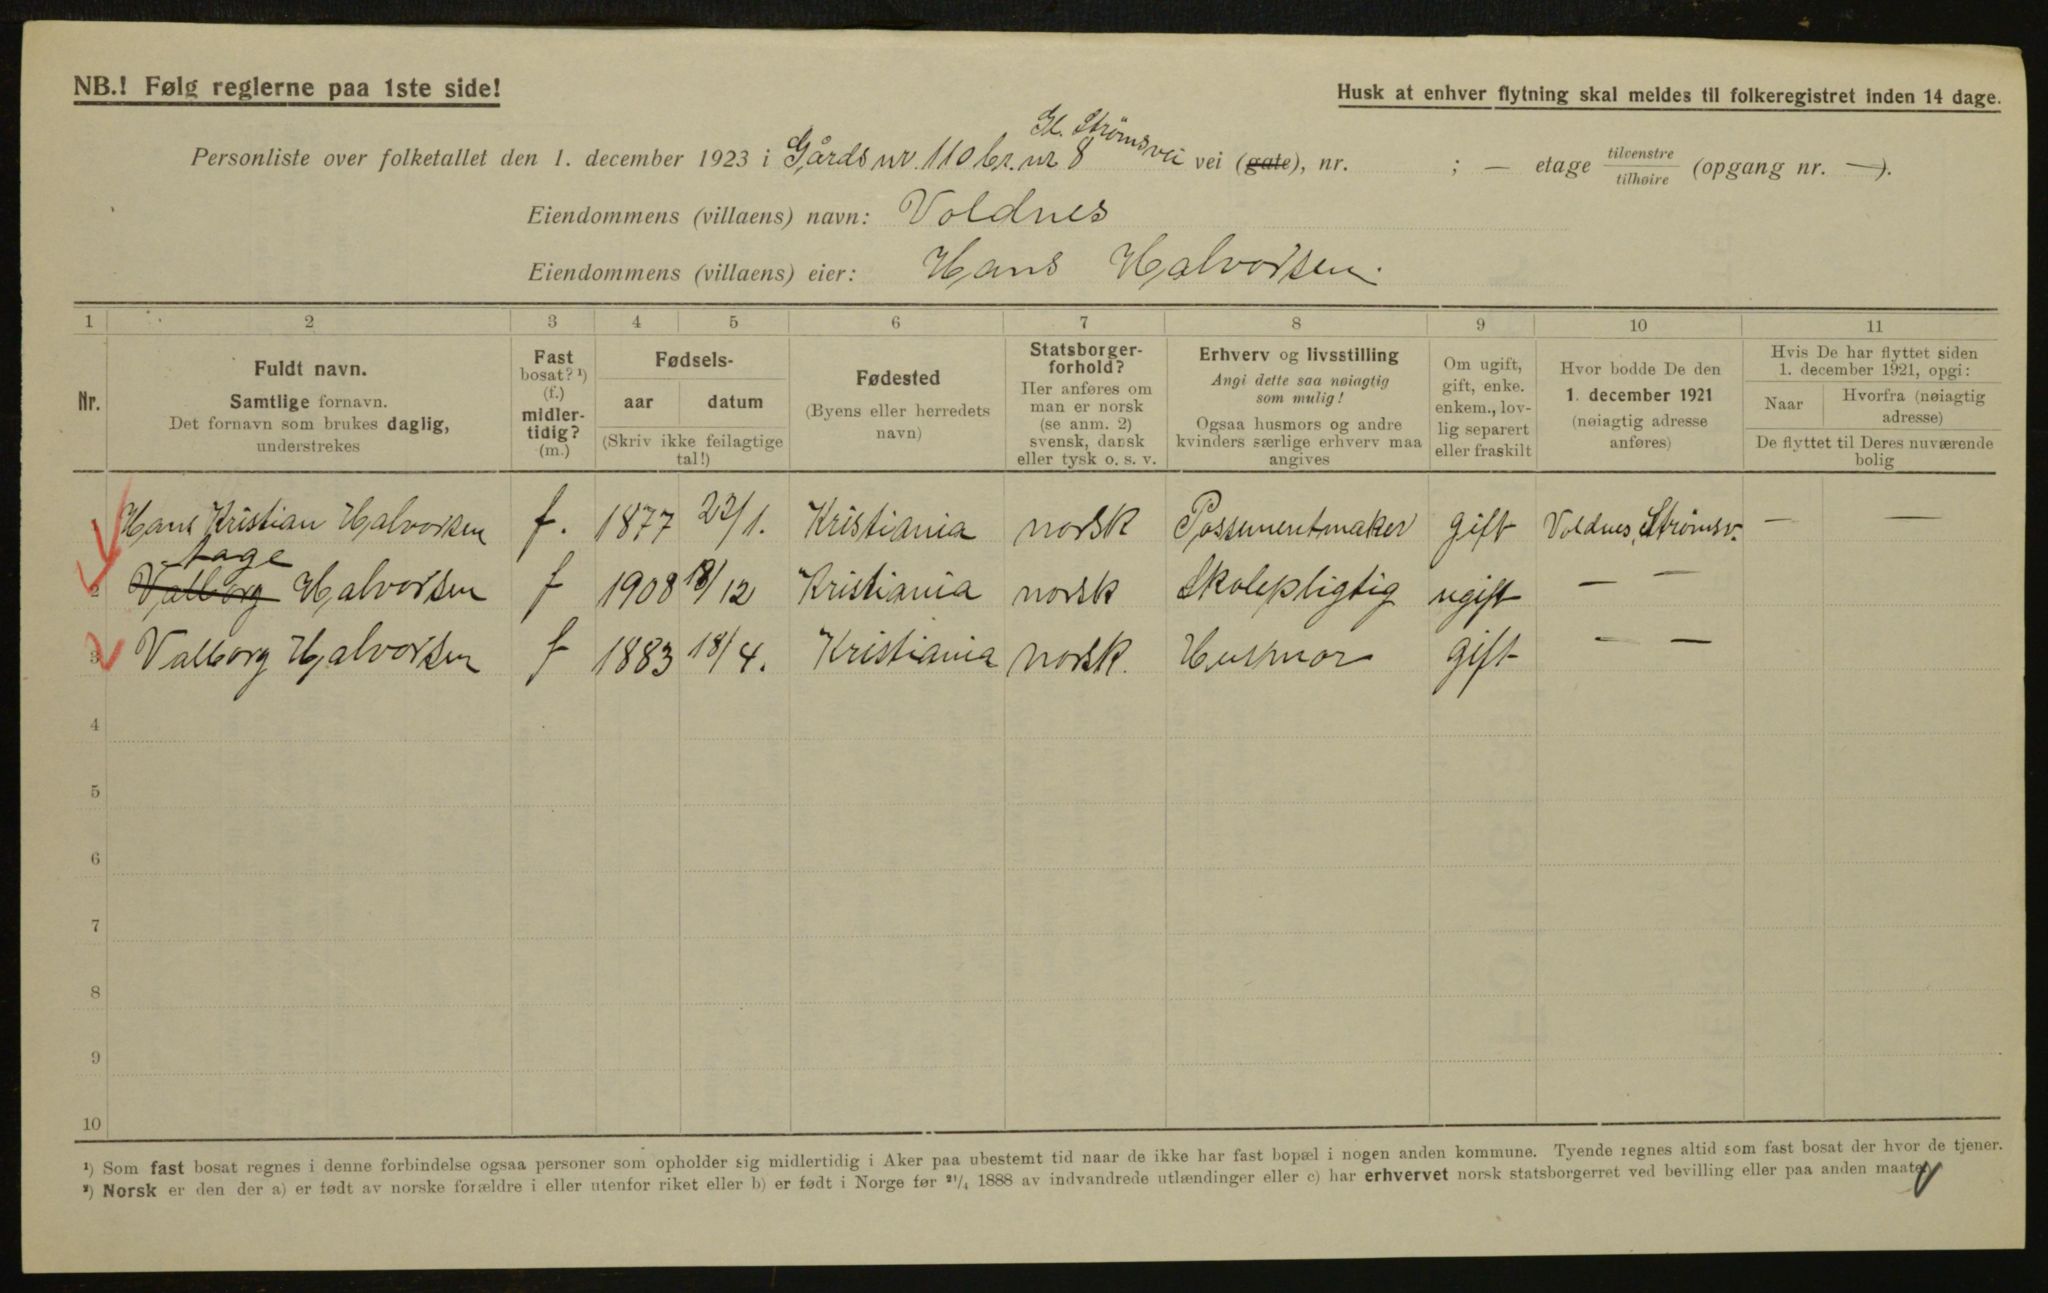 NB.! Følg reglerne paa 1ste side!
Husk at enhver flytning skal meldes til folkeregistret inden 14 dage.
Gl. Strömsvei
Personliste over folketallet den 1. december 1923 i Gårds nr. 110 br. nr 8 vei (gate), nr. ; — etage tilvenstre tilhøire (opgang nr. —).
Eiendommens (villaens) navn: Voldnes
Eiendommens (villaens) eier: Hans Halvorsen.
1 2 3 4 5 6 7 8 9 10 11
Nr.
Fuldt navn.
Samtlige fornavn.
Det fornavn som brukes daglig,
understrekes
Fast
bosat? ¹)
(f.)
midler-
tidig?
(m.)
Fødsels-
aar datum
(Skriv ikke feilagtige
tal!)
Fødested
(Byens eller herredets
navn)
Statsborger-
forhold?
Her anføres om
man er norsk
(se anm. 2)
svensk, dansk
eller tysk o. s. v.
Erhverv og livsstilling
Angi dette saa nøiagtig
som mulig!
Ogsaa husmors og andre
kvinders særlige erhverv maa
angives
Om ugift,
gift, enke.
enkem., lov-
lig separert
eller fraskilt
Hvor bodde De den
1. december 1921
(nøiagtig adresse
anføres)
Hvis De har flyttet siden
1. december 1921, opgi:
Naar
Hvorfra (nøiagtig
adresse)
De flyttet til Deres nuværende
bolig
Hans Kristian Halvorsen f. 1877 23/1. Kristiania norsk Possementmaker gift Voldnes, Strømsv. — —
Aage
2 Valborg Halvorsen f 1908 18/12 Kristiania norsk Skolepligtig ugift — —
3 Valborg Halvorsen f 1883 18/4. Kristiania norsk. Husmor gift — —
4
5
6
7
8
9
10
¹) Som fast bosat regnes i denne forbindelse ogsaa personer som opholder sig midlertidig i Aker paa ubestemt tid naar de ikke har fast bopæl i nogen anden kommune. Tyende regnes altid som fast bosat der hvor de tjener.
²) Norsk er den der a) er født av norske forældre i eller utenfor riket eller b) er født i Norge før ²¹/₄ 1888 av indvandrede utlændinger eller c) har erhvervet norsk statsborgerret ved bevilling eller paa anden maate.